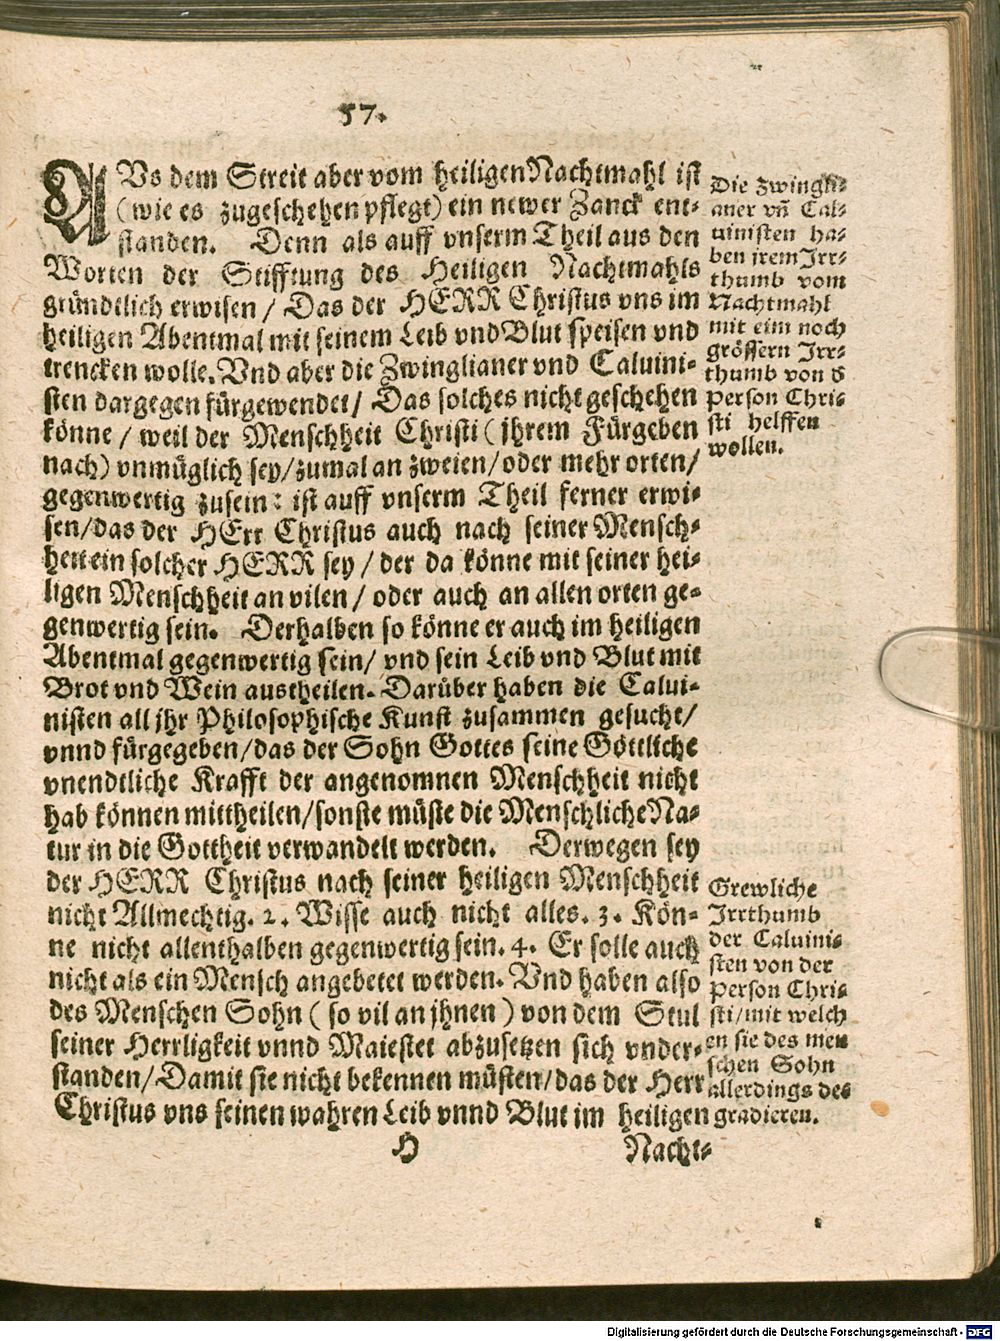 57.
AVs dem Streit aber vom heiligen Nachtmahl ist
(wie es zugeschehen pflegt) ein newer Zanck ent-
standen. Denn als auff vnserm Theil aus den
Worten der Stifftung des Heiligen Nachtmahls
gründtlich erwisen / Das der HERR Christus vns im
heiligen Abentmal mit seinem Leib vnd Blut speisen vnd
trencken wolle. Vnd aber die Zwinglianer vnd Caluini-
sten dargegen fürgewendet / Das solches nicht geschehen
könne / weil der Menschheit Christi (jhrem Fürgeben
nach) vnmüglich sey / zumal an zweien / oder mehr orten /
gegenwertig zusein: ist auff vnserm Theil ferner erwi-
sen / das der HErr Christus auch nach seiner Mensch-
heit ein solcher HERR sey / der da könne mit seiner hei-
ligen Menschheit an vilen / oder auch an allen orten ge-
genwertig sein. Derhalben so könne er auch im heiligen
Abentmal gegenwertig sein / vnd sein Leib vnd Blut mit
Brot vnd Wein austheilen. Darüber haben die Calui-
nisten all jhr Philosophische Kunst zusammen gesucht /
vnnd fürgegeben / das der Sohn Gottes seine Göttliche
vnendtliche Krafft der angenomnen Menschheit nicht
hab können mittheilen / sonste müste die Menschliche Na-
tur in die Gottheit verwandelt werden. Derwegen sey
der HERR Christus nach seiner heiligen Menschheit
nicht Allmechtig. 2. Wisse auch nicht alles. 3. Kön-
ne nicht allenthalben gegenwertig sein. 4. Er solle auch
nicht als ein Mensch angebetet werden. Vnd haben also
des Menschen Sohn (so vil an jhnen) von dem Stul
seiner Herrligkeit vnnd Maiestet abzusetzen sich vnder-
standen / Damit sie nicht bekennen müsten / das der Herr
Christus vns seinen wahren Leib vnnd Blut im heiligen
H Nacht-
Die Zwingli-
aner vñ Cal-
uinisten ha-
ben jrem Irr-
thumb vom
Nachtmahl
mit eim noch
grössern Irr-
thumb von d
Person Chri-
sti helffen
wollen.
Grewliche
Irrthumb
der Caluini-
sten von der
Person Chri-
sti / mit welch
en sie des men
schen Sohn
allerdings des
gradieren.
Digitalisierung gefördert durch die Deutsche Forschungsgemeinschaft - DFG